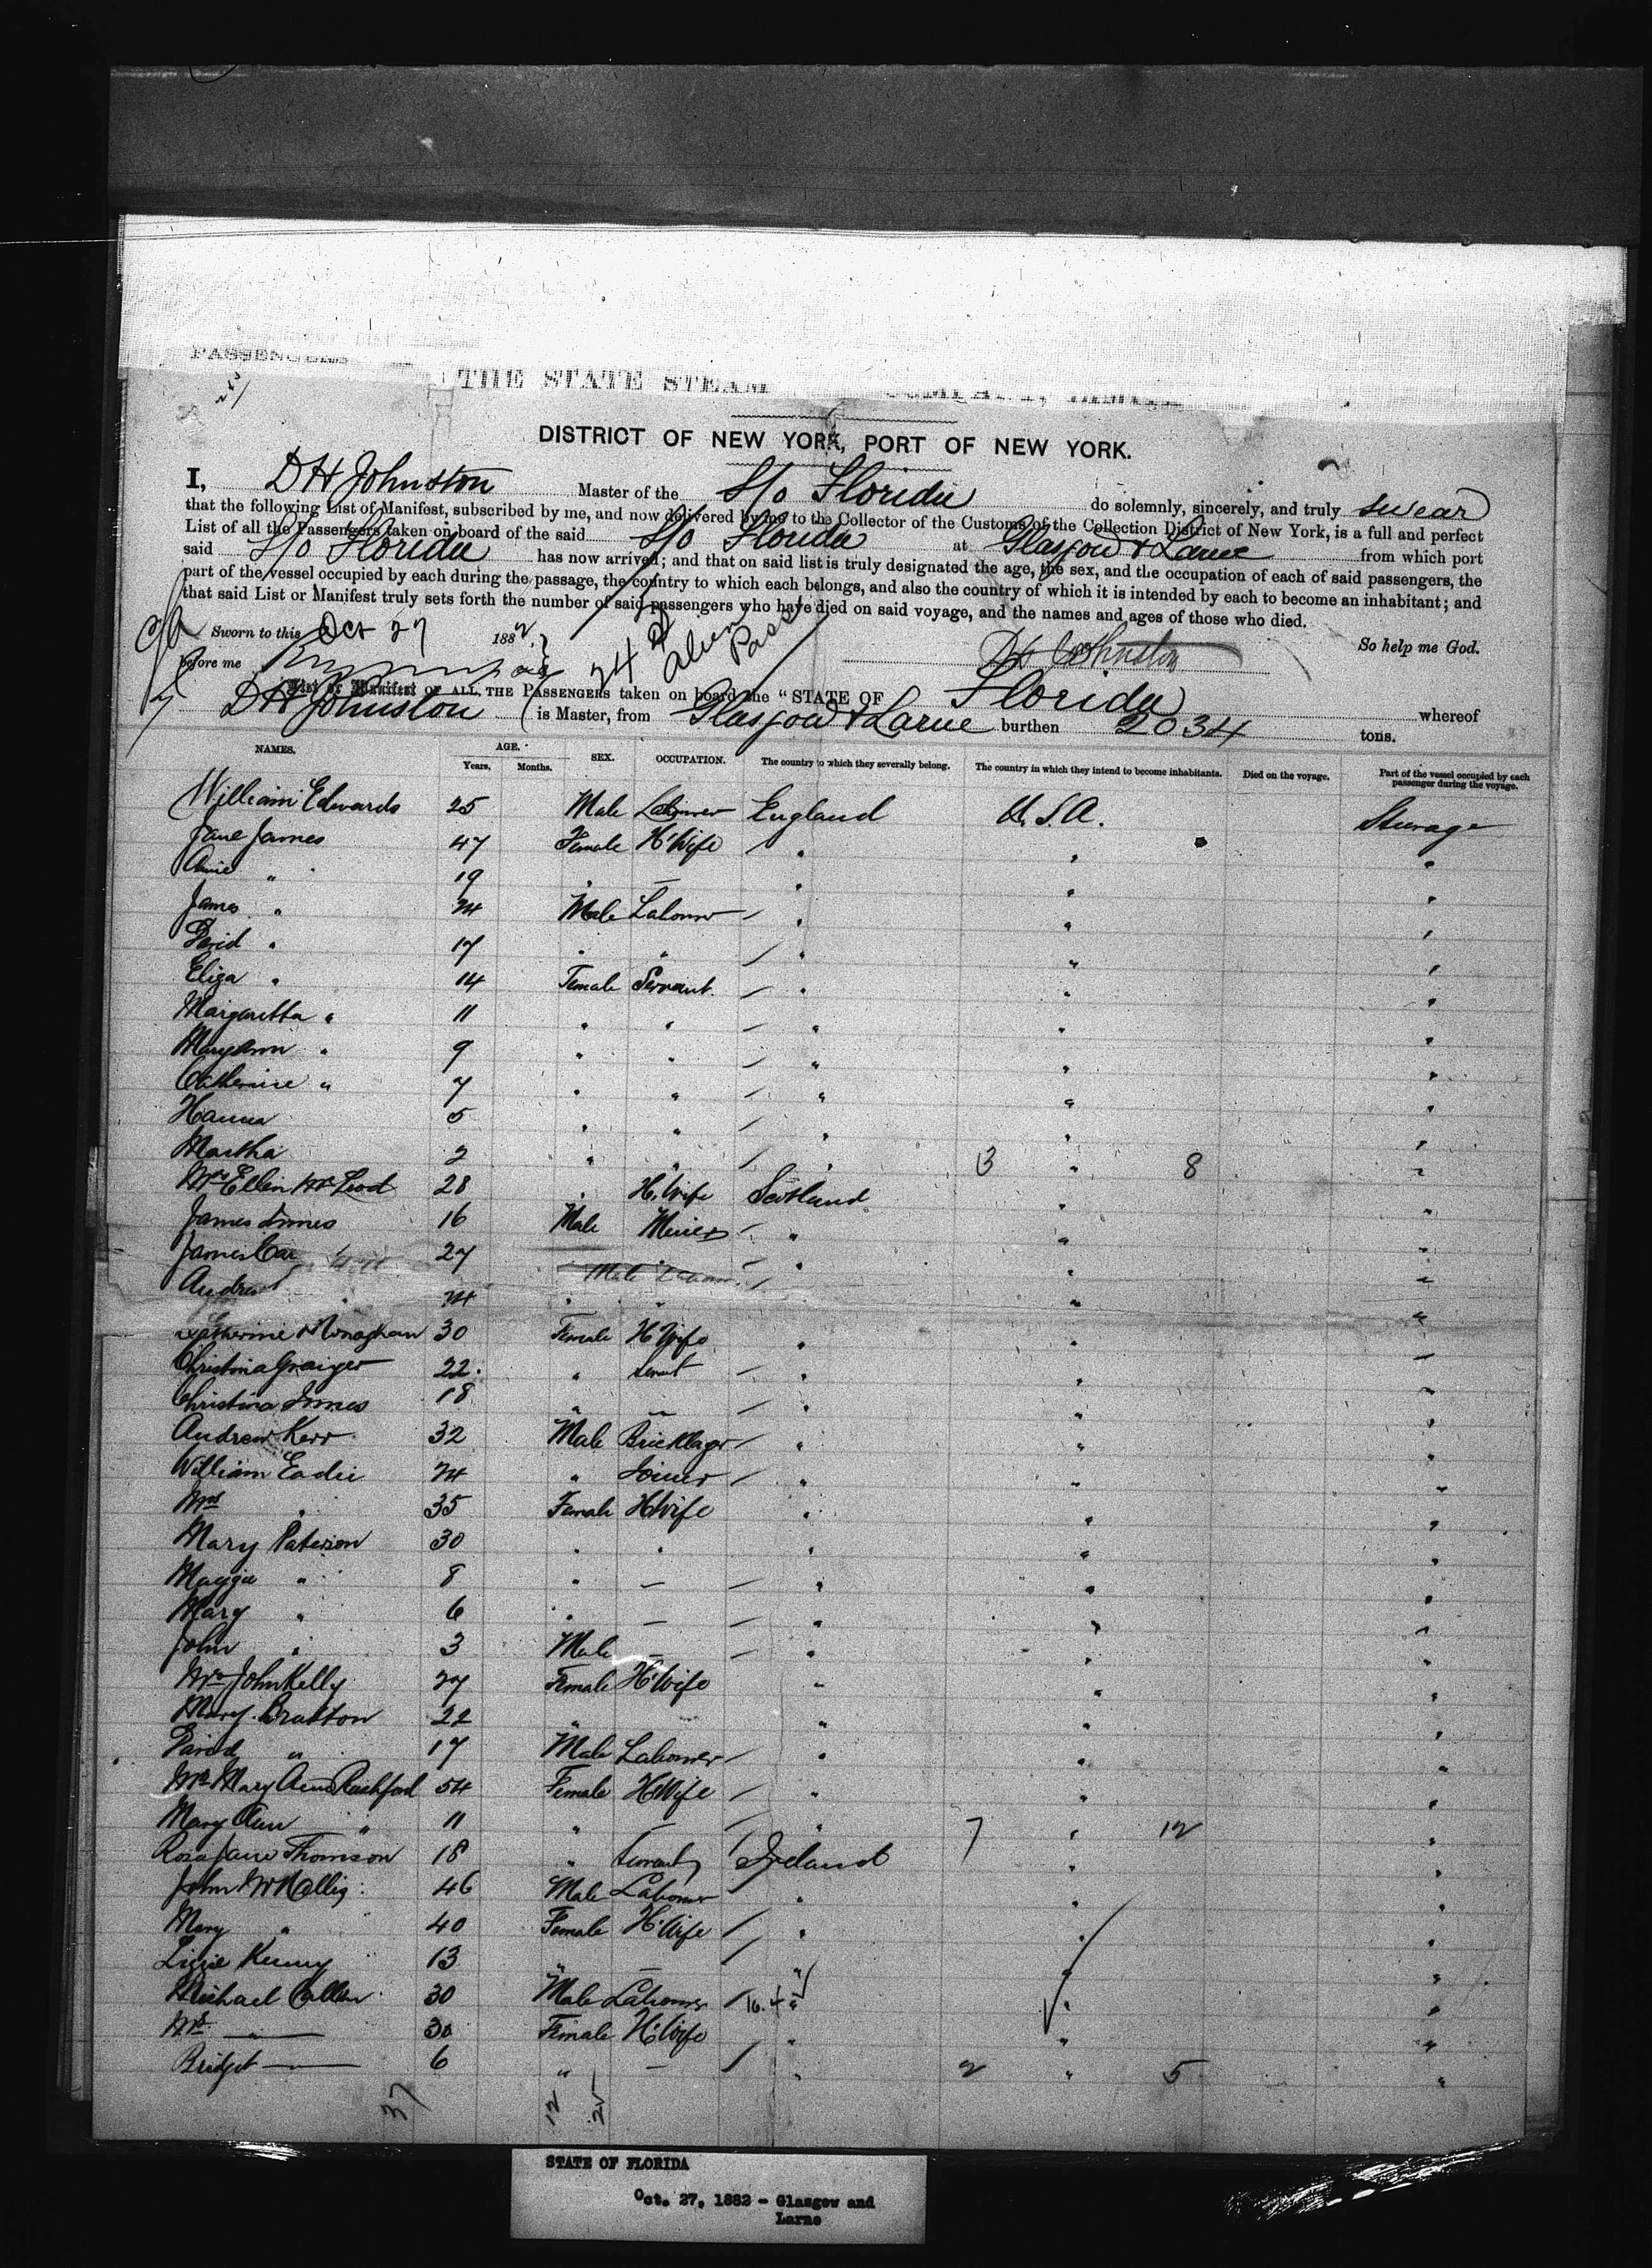 PASSENGERS
THE STATE STEAM COMPANY,
DISTRICT OF NEW YORK, PORT OF NEW YORK.
I, D H Johnston Master of the S/o Florida do solemnly, sincerely, and truly swear
that the following List of Manifest, subscribed by me, and now delivered by me to the Collector of the Customs of the Collection District of New York, is a full and perfect
List of all the Passengers taken on board of the said S/o Florida at Glasgow & Larne from which port
said S/o Florida has now arrived; and that on said list is truly designated the age, the sex, and the occupation of each of said passengers, the
part of the vessel occupied by each during the passage, the country to which each belongs, and also the country of which it is intended by each to become an inhabitant; and
that said List or Manifest truly sets forth the number of said passengers who have died on said voyage, and the names and ages of those who died.
Sworn to this Oct 27 1882 So help me God.
before me D H Johnston
242 Alien Pass
List or Manifest OF ALL THE PASSENGERS taken on board the "STATE OF Florida whereof
D H Johnston is Master, from Glasgow & Larne burthen 2034 tons.
NAMES. AGE. Years. Months. SEX. OCCUPATION. The country to which they severally belong. The country in which they intend to become inhabitants. Died on the voyage. Part of the vessel occupied by each passenger during the voyage.
William Edwards 25 Male Labourer England U.S.A. Steerage
Jane James 47 Female H'Wife " " "
Annie " 19 " — " " "
James " 24 Male Labourer " " "
David " 17 " " " " "
Eliza " 14 Female Servant " " "
Margaretta " 11 " " " " "
Mary Ann " 9 " " " " "
Catherine " 7 " " " " "
Hanna 5 " " " " "
Martha 2 " " " 3 " 8 "
Mrs Ellen McLeod 28 " H.Wife Scotland " "
James Innes 16 Male Miner " " "
James 27 Male " " "
Andrew 24 " " " "
Catherine Monaghan 30 Female H'Wife " " "
Christina Graiger 22 " Servt " " "
Christina Innes 18 " " " " "
Andrew Kerr 32 Male Bricklayr " " "
William Eadie 24 " Joiner " " "
Mrs " 35 Female H'Wife " " "
Mary Paterson 30 " " " " "
Maggie " 8 " — " " "
Mary " 6 " — " " "
John " 3 Male — " " "
Mrs John Kelly 27 Female H'Wife " " "
Mary Bratton 22 " " " "
David " 17 Male Labourer " " "
Mrs Mary Ann Rachford 54 Female H'Wife " " "
Mary Ann " 11 " — " 7 " 12 "
Rosa Jane Thomson 18 " Servant Ireland " "
John 46 Male Labourer " " "
Mary " 40 Female H'Wife " " "
Lizzie Kenny 13 " — " " "
Michael Cullen 30 Male Labourer " " "
Mrs " 30 Female H'Wife " " "
Bridget " 6 " — " 2 " 5 "
37 12 25
STATE OF FLORIDA
Oct. 27, 1882 - Glasgow and
Larne